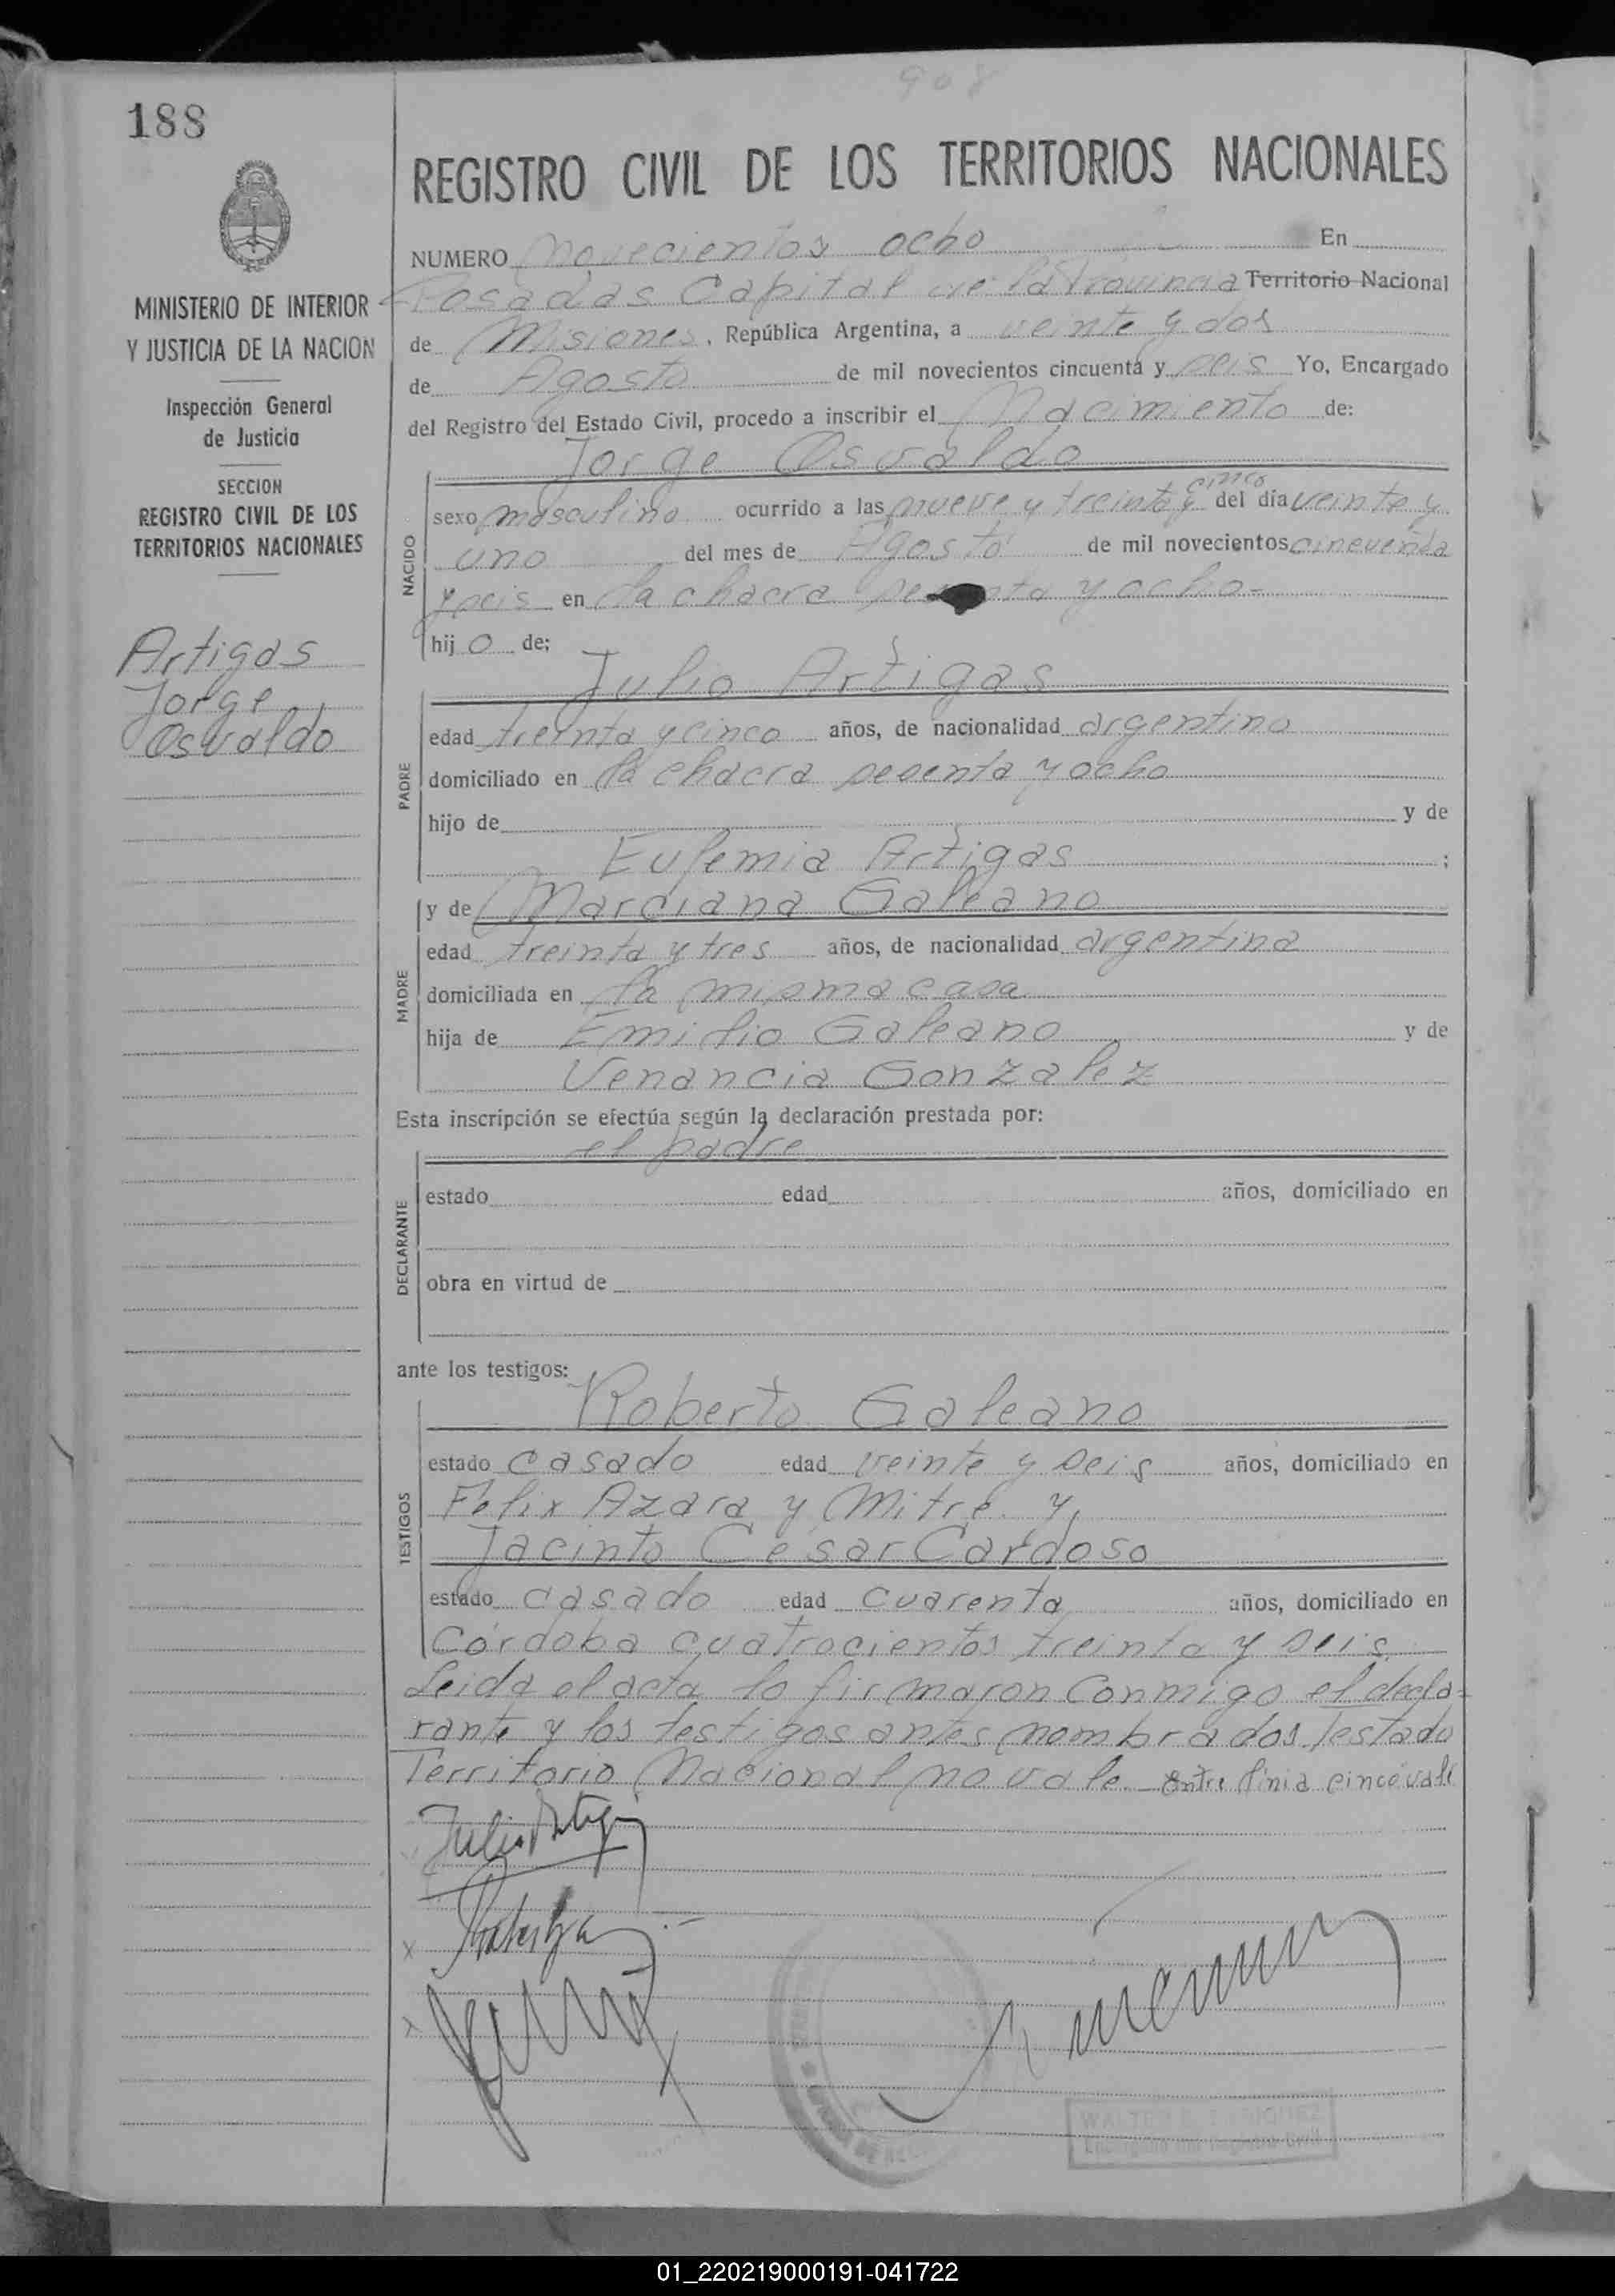 908
188
REGISTRO CIVIL DE LOS TERRITORIOS NACIONALES
MINISTERIO DE INTERIOR
Y JUSTICIA DE LA NACION
Inspección General
de Justicia
SECCION
REGISTRO CIVIL DE LOS
TERRITORIOS NACIONALES
Artigas
Jorge
Osvaldo
NUMERO Novecientos ocho En
Posadas Capital de la Provincia Territorio Nacional
de Misiones, República Argentina, a veinte y dos
de Agosto de mil novecientos cincuenta y seis Yo, Encargado
del Registro del Estado Civil, procedo a inscribir el Nacimiento de:
Jorge Osvaldo
NACIDO
cinco
sexo masculino ocurrido a las nueve y treinta y del día veinte y
uno del mes de Agosto de mil novecientos cincuenta
y seis en la chacra y ocho-
hijo de:
Julio Artigas
PADRE
edad treinta y cinco años, de nacionalidad argentino
domiciliado en la chacra sesenta y ocho
hijo de y de
Eufemia Artigas ;
y de Marciana Galeano
MADRE
edad treinta y tres años, de nacionalidad argentina
domiciliada en la misma casa
hija de Emilio Galeano y de
Venancia Gonzalez
Esta inscripción se efectúa según la declaración prestada por:
el padre
DECLARANTE
estado edad años, domiciliado en
obra en virtud de
ante los testigos:
Roberto Galeano
TESTIGOS
estado casado edad veinte y seis años, domiciliado en
Felix Azara y Mitre y,
Jacinto César Cardoso
estado casado edad cuarenta años, domiciliado en
Córdoba cuatrocientos treinta y seis
Leida el acta la firmaron conmigo el decla-
rante y los testigos antes nombrados. Testado
Territorio Nacional no vale entre linia cinco vale
Julio Artigas
01_220219000191-041722